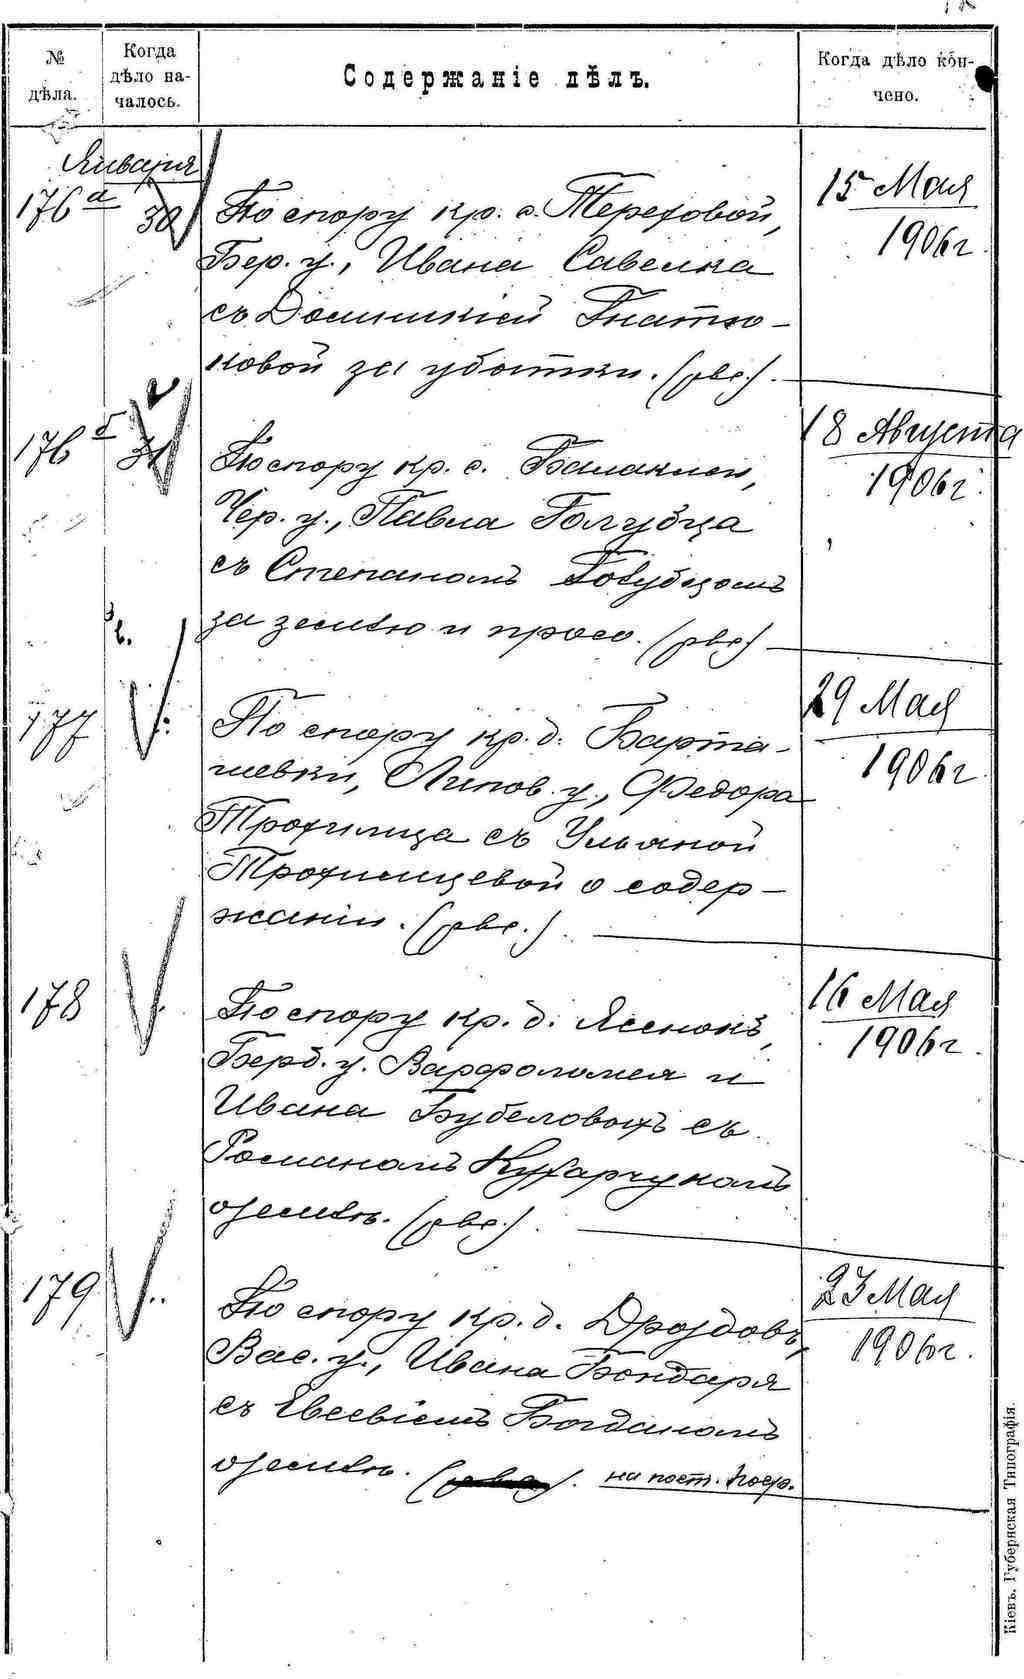 № дѣла.
Когда дѣло началось.
Содержаніе дѣлъ.
Когда дѣло кончено.
Января
176 а
30
По спору кр. с. Тереховой,
Бер. у., Ивана Савелка
съ Домникіей Гнатю-
ковой за убытки. (рвс.).
15 Мая
1906 г.
176 б
31
По спору кр. с. Балаклеи,
Чер. у., Павла Голубца
съ Степаномъ Голубцомъ
за землю и просо. (рвс)
18 Августа
1906 г.
177
По спору кр. д. Барта-
шевки, Липов. у., Федора
Трофимца съ Ульяной
Трофимцевой о содер-
жаніи. (рвс.).
29 Мая
1906 г.
178
По спору кр. д. Ясенокъ,
Берд. у. Варфоломея и
Ивана Бубеловыхъ съ
Романомъ Кухарчукомъ
о землѣ. (рвс.).
16 Мая
1906 г.
179
По спору кр. д. Дроздовъ,
Вас. у., Ивана Бондаря
съ Евсевіемъ Богданомъ
о землѣ. на пост.
23 Мая
1906 г.
Кіевъ. Губернская Типографія.